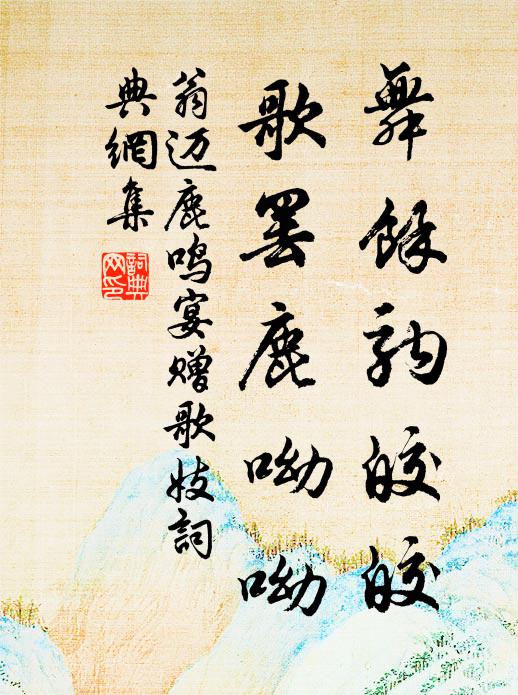 舞馀駒皎皎
歌罢鹿呦呦
翁迈鹿鸣宴赠歌妓詞
典網集
詞典
网印